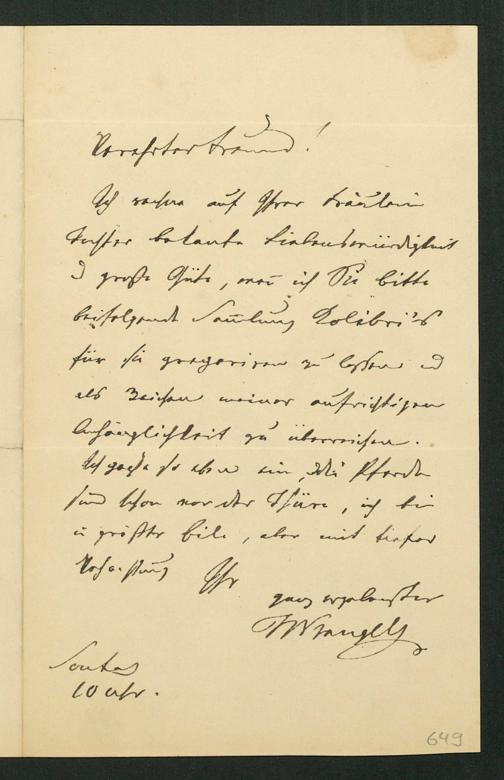 Verehrter Freund!
Ich rechne auf Ihrer Fräulein
Tochter bekannte Liebenswürdigkeit
u große Güte, wen̄ ich Sie bitte
beifolgende Sam̄lung Kolibri's
für sie präpariren zu lassen u
als Zeichen meiner aufrichtigen
Anhänglichkeit zu überreichen.
Ich packe so eben ein, die Pferde
sind schon vor der Thüre, ich bin
in größter Eile, aber mit tiefer
Hochachtung Ihr
ganz ergebenster
Wrangell
Sontag
10 Uhr.
649